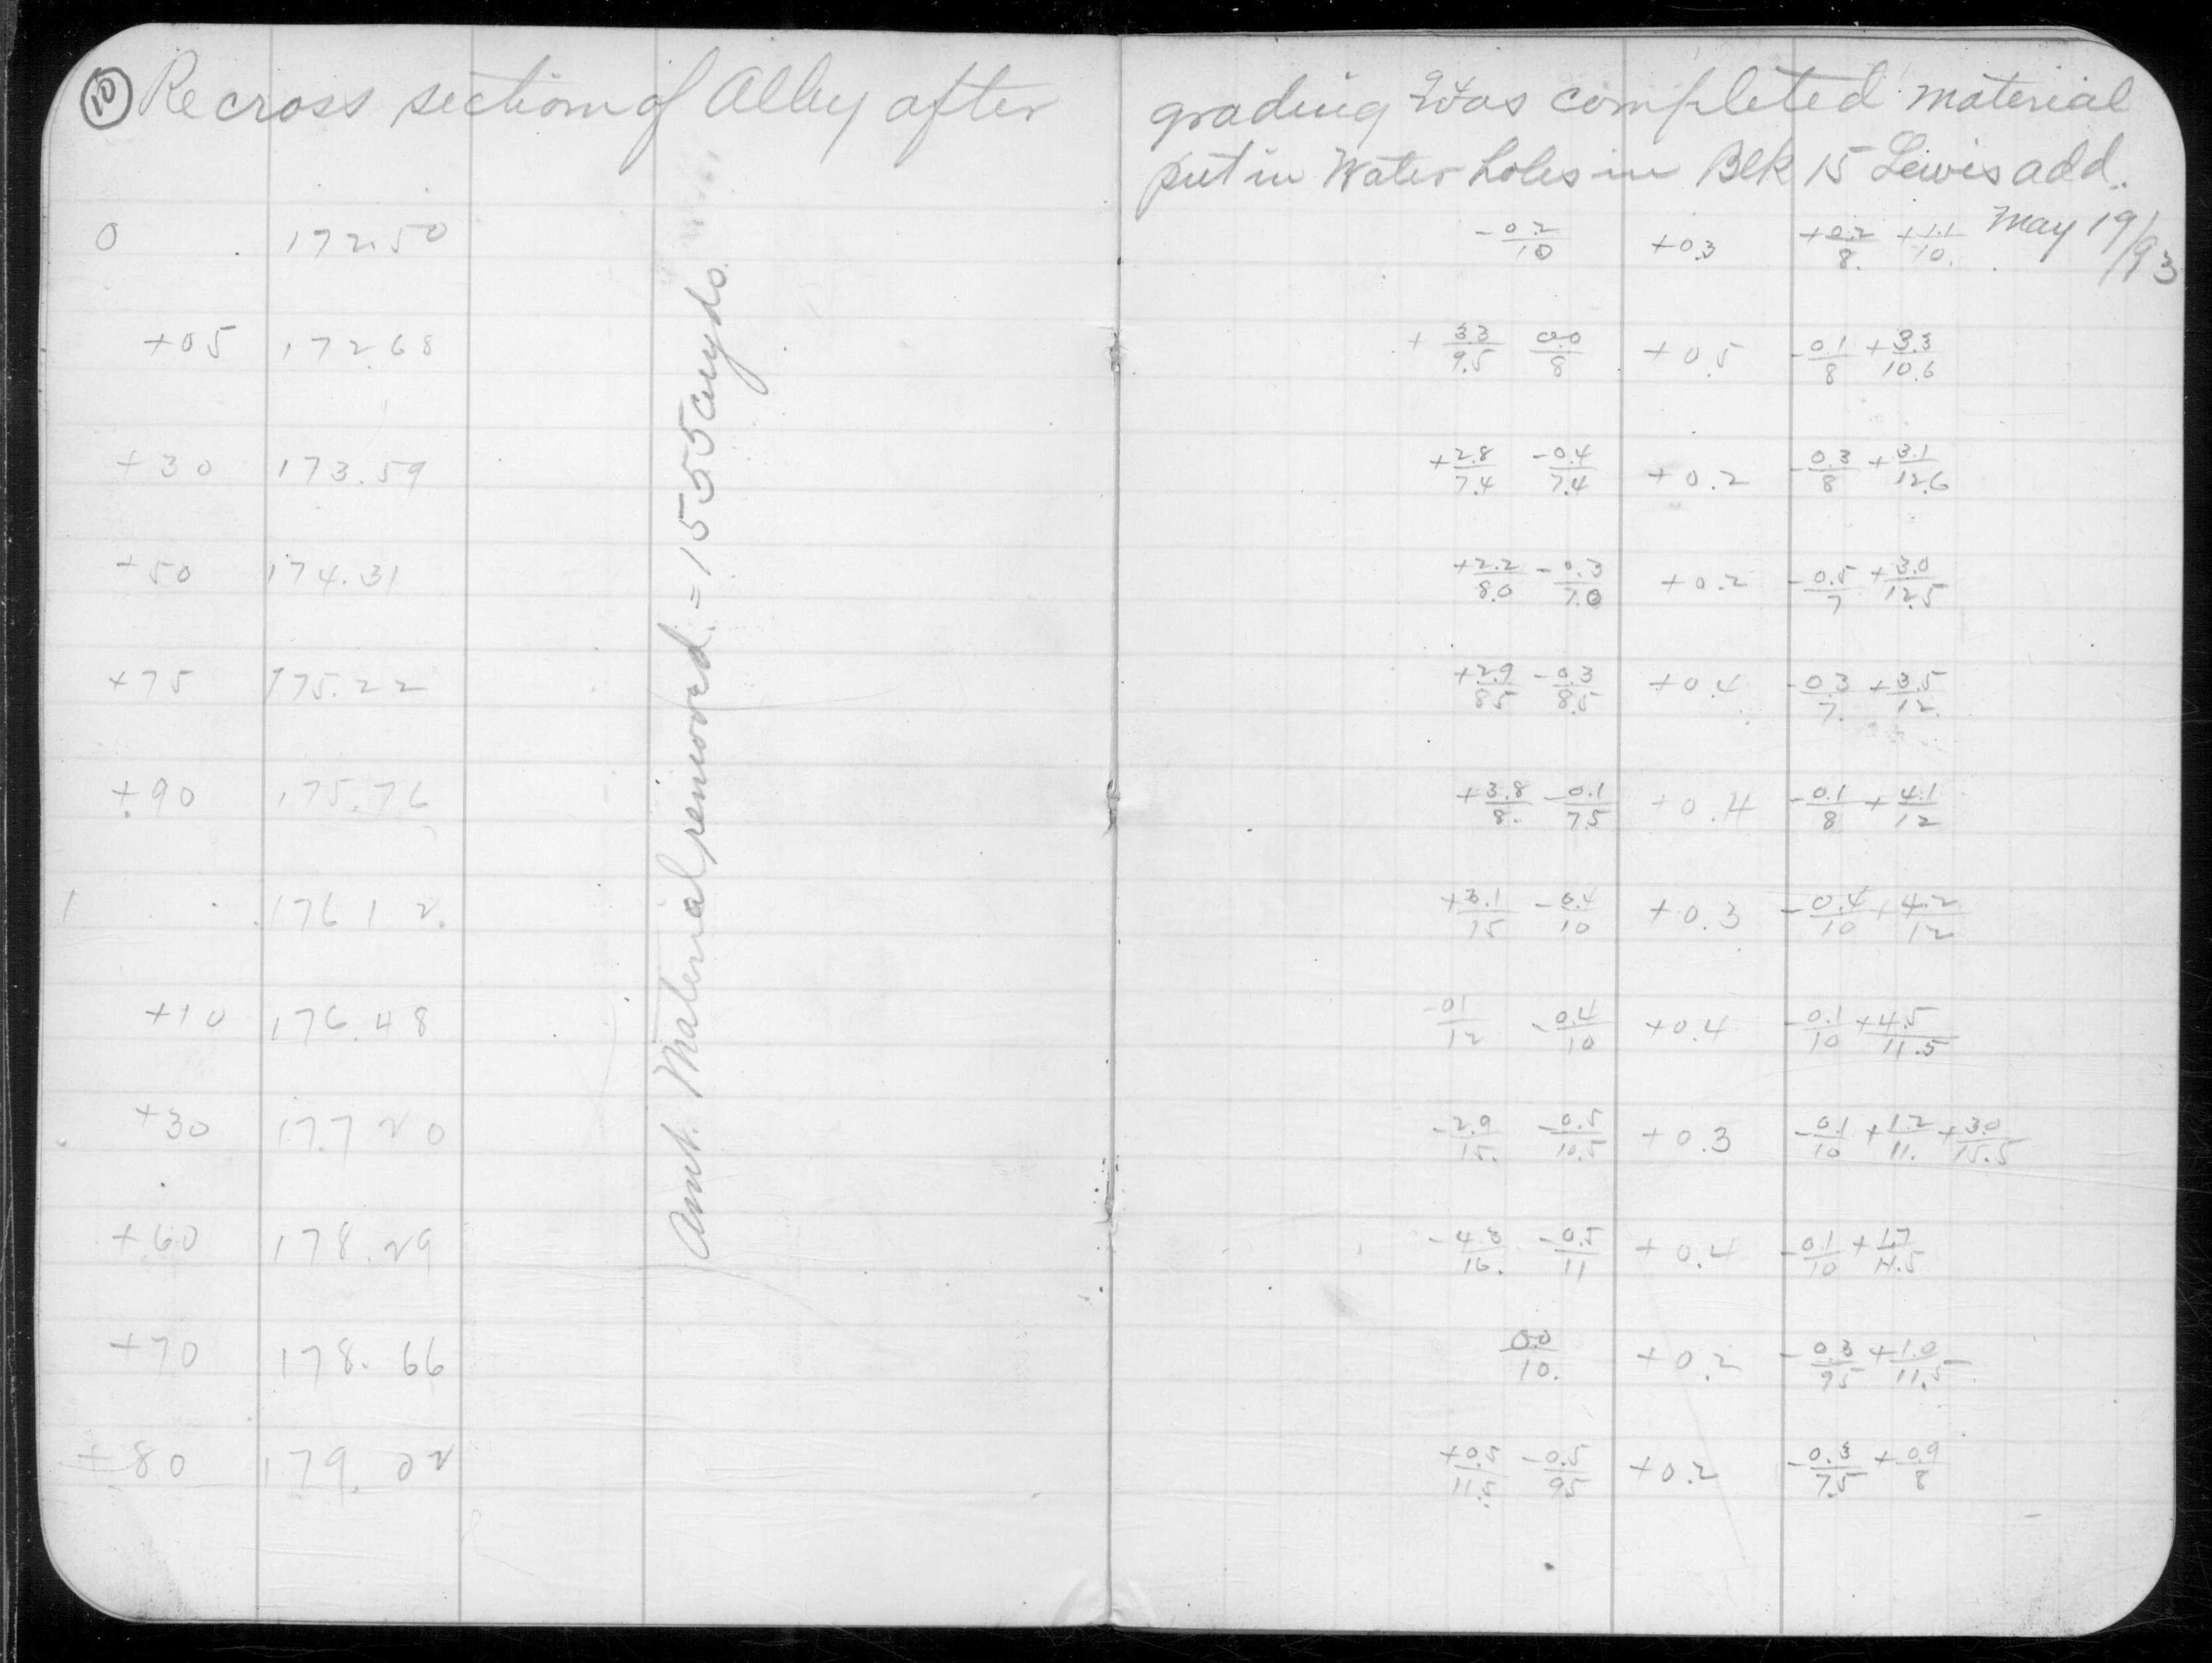 10 Re cross section of Alley after grading was completed material
put in Water holes in Blk 15 Lewis add.
May 19/93
0 172.50 -0.2/10 +0.3 +0.2/8. +1.1/10.
+05 172.68 +3.3/9.5 0.0/8 +0.5 -0.1/8 +3.3/10.6
+30 173.59 +2.8/7.4 -0.4/7.4 +0.2 -0.3/8 +3.1/12.6
+50 174.31 +2.2/8.0 -0.3/7.0 +0.2 -0.5/7 +3.0/12.5
+75 175.22 +2.9/8.5 -0.3/8.5 +0.4 -0.3/7. +3.5/12.
+90 175.76 +3.8/8. -0.1/7.5 +0.4 -0.1/8 +4.1/12
1 176 12. +3.1/15 -0.4/10 +0.3 -0.4/10 +4.2/12
+10 176.48 -01/12 -0.4/10 +0.4 -0.1/10 +4.5/11.5
+30 177 20 -2.9/15. -0.5/10.5 +0.3 -0.1/10 +1.2/11. +3.0/15.5
+60 178.29 -4.3/16. -0.5/11 +0.4 -0.1/10 +1.7/11.5
+70 178.66 0.0/10. +0.2 -0.3/95 +1.0/11.5
+80 179.02 +0.5/11.5 -0.5/95 +0.2 -0.3/7.5 +0.9/8
Amt. Material removed = 1555 cu yds.